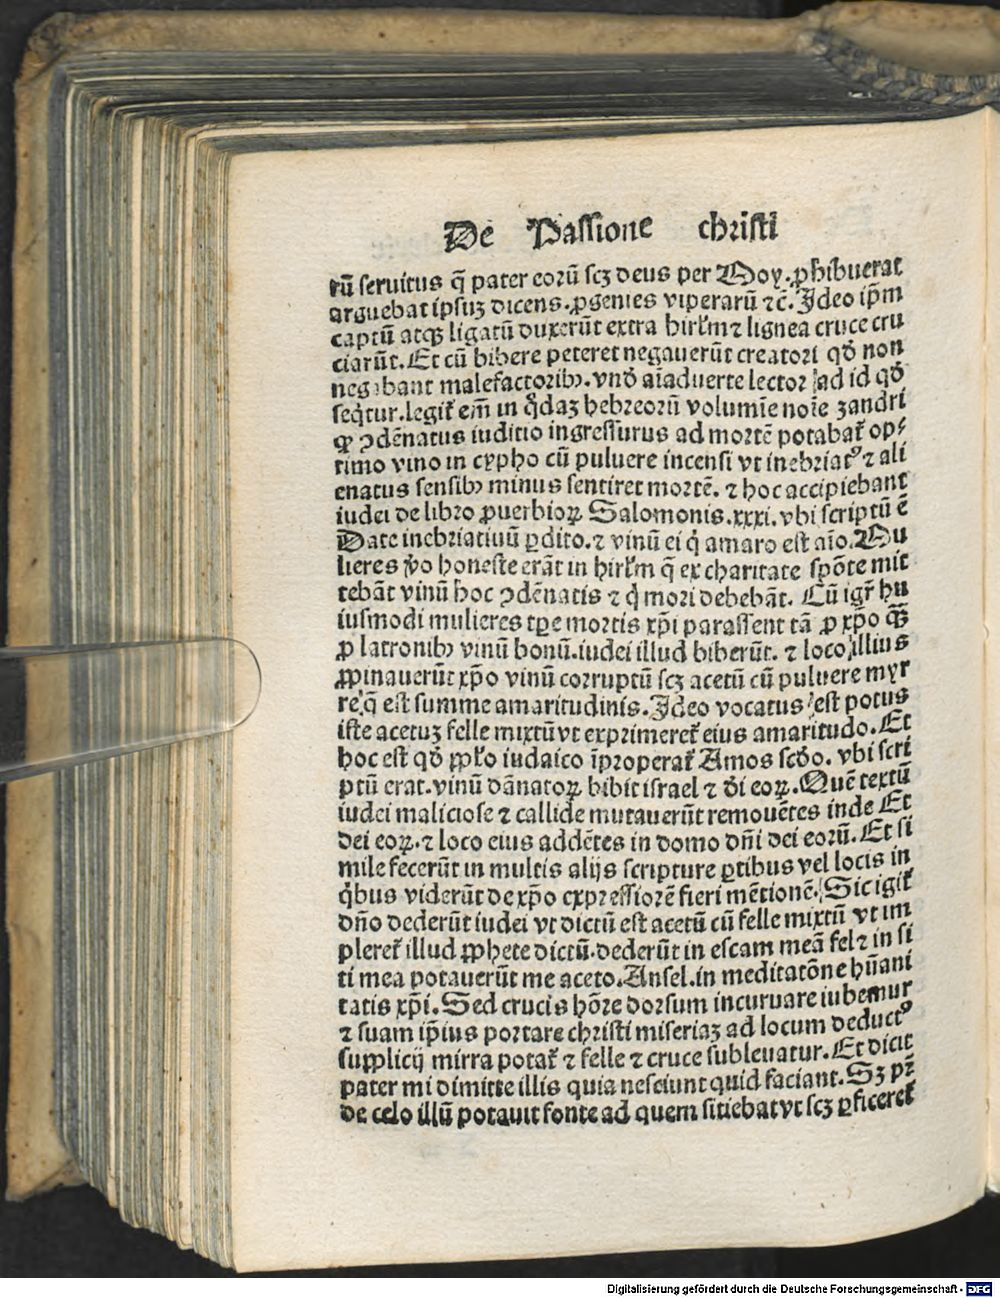 De Passione christi
rū seruitus q̄ pater eorū scꝫ deus per Moy. ꝓhibuerat
arguebat ipsuꝫ dicens. ꝓgenies viperarū ⁊c̄. Jdeo ip̄m
captū atqꝫ ligatū duxerūt extra hirl̄m ⁊ lignea cruce cru
ciarūt. Et cū bibere peteret negauerūt creatori qđ non
negabant malefactoribꝫ. vnđ aīaduerte lector ad id qđ
seq̇tur. legit̄ em̄ in q̇daꝫ hebreorū volumīe noīe zandri
ꝙ ↄdēnatus iuditio ingressurus ad mortē potabat̄ op⸗
timo vino in cypho cū puluere incensi vt inebriatꝰ ⁊ ali
enatus sensibꝫ minus sentiret mortē. ⁊ hoc accipiebant
iudei de libro ꝓuerbioꝝ Salomonis. xxxi. vbi scriptū ē
Date inebriatiuū ꝑdito. ⁊ vinū ei q̇ amaro est aīo. Mu
lieres v̄o honeste erāt in hirl̄m q̄ ex charitate spōte mit
tebāt vinū hoc ↄdēnatis ⁊ q̇ mori debebāt. Cū igr̄ hu
iusmodi mulieres tꝑe mortis xp̄i parassent tā ꝓ xp̄o q̄ꝫ
ꝓ latronibꝫ vinū bonū. iudei illud biberūt. ⁊ loco illius
ꝓpinauerūt xp̄o vinū corruptū scꝫ acetū cū puluere myr
re q̄ est summe amaritudinis. Jdeo vocatus est potus
iste acetuꝫ felle mixtū vt exprimeret̄ eius amaritudo. Et
hoc est qđ ꝓp̄lo iudaico īproperat̄ Amos scđo. vbi scri
ptū erat. vinū dānatoꝝ bibit israel ⁊ đi eoꝝ. Quē textū
iudei maliciose ⁊ callide mutauerūt remouētes inde Et
dei eoꝝ. ⁊ loco eius addētes in domo dn̄i dei eorū. Et si
mile fecerūt in multis alijs scripture ꝑtibus vel locis in
q̇bus viderūt de xp̄o expressiorē fieri mētionē. Sic igit̄
dn̄o dederūt iudei vt dictū est acetū cū felle mixtū vt im
pleret̄ illud ꝓphete dictū. dederūt in escam meā fel ⁊ in si
ti mea potauerūt me aceto. Ansel. in meditatōne hūani
tatis xp̄i. Sed crucis hōre dorsum incuruare iubemur
⁊ suam ip̄ius portare christi miseriaꝫ ad locum deductꝰ
supplicij mirra potat̄ ⁊ felle ⁊ cruce subleuatur. Et dicit
pater mi dimitte illis quia nesciunt quid faciant. Sꝫ pr̄
de celo illū potauit fonte ad quem sitiebat vt scꝫ ꝑficeret̄
Digitalisierung gefördert durch die Deutsche Forschungsgemeinschaft - DFG